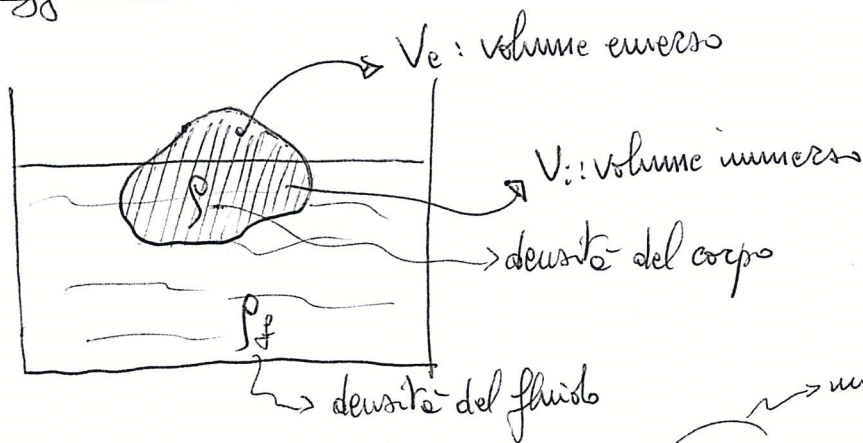 Ve : volume emerso
Vi : volume immerso
ρ
densità del corpo
ρf
densità del fluido